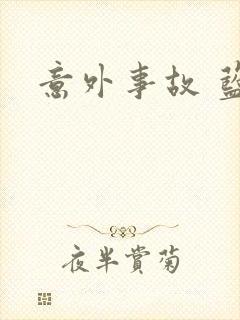 意外事故
夜半賞菊